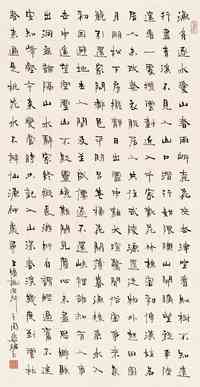 漁舟逐水愛山春兩岸桃花夾古津坐看紅樹不知遠
行盡青溪不見人山口潛行始隈隩山開曠望旋平陸
遙看一處攢雲樹近入千家散花竹樵客初傳漢姓名
居人未改秦衣服居人共住武陵源還從物外起田園
月明松下房櫳靜日出雲中雞犬喧驚聞俗客爭來集
競引還家問都邑平明閭巷掃花開薄暮漁樵乘水入
初因避地去人間及至成仙遂不還峽裏誰知有人事
世中遙望空雲山不疑靈境難聞見塵心未盡思鄉縣
出洞無論隔山水辭家終擬長游衍自謂經過舊不迷
安知峰壑今來變當時只記入山深青溪幾度到雲林
春來遍是桃花水不辨仙源何處尋 王維桃源行